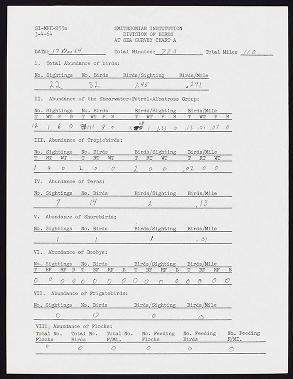 SI-MNH-955a
3-4-64
SMITHSONIAN INSTITUTION
DIVISION OF BIRDS
AT SEA SURVEY CHART A
DATE: 17 Total Minutes: Total Miles 110
I. Total Abundance of birds:
No. Sightings No. Birds Birds/Sighting Birds/Mile
22 32 1.45 .291
II. Abundance of the Shearwater-Petrel-Albatross Group:
No. Sightings No. Birds Birds/Sighting Birds/Mile
T WT P S T WT P S T WT P S T WT P S
III. Abundance of Tropicbirds:
No. Sightings No. Birds Birds/Sighting Birds/Mile
T RT WT T RT WT T RT WT T RT WT
1 0 0 2 0 0 2 0 0 .02 0 0
IV. Abundance of Terns:
No. Sightings No. Birds Birds/Sighting Birds/Mile
7 14 2 .13
V. Abundance of Shorebirds:
No. Sightings No. Birds Birds/Sighting Birds/Mile
1 1 1 .01
VI. Abundance of Boobys:
No. Sightings No. Birds Birds/Sighting Birds/Mile
T RF BF B T RF BF B T RF BF B T RF BF B
0 0 0 0 0 0 0 0 0 0 0 0 0 0 0 0
VII. Abundance of Frigatebirds:
No. Sightings No. Birds Birds/Sighting Birds/Mile
0 0 0 0
VIII. Abundance of Flocks:
Total No. Total No. Total No. No. Feeding No. Feeding No. Feeding
Flocks Birds F/MI. Flocks Birds F/MI.
0 0 0 0 0 0